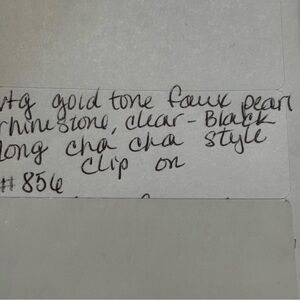 vtg gold tone faux pearl
rhinestone, clear - Black
long cha cha style
clip on
#856